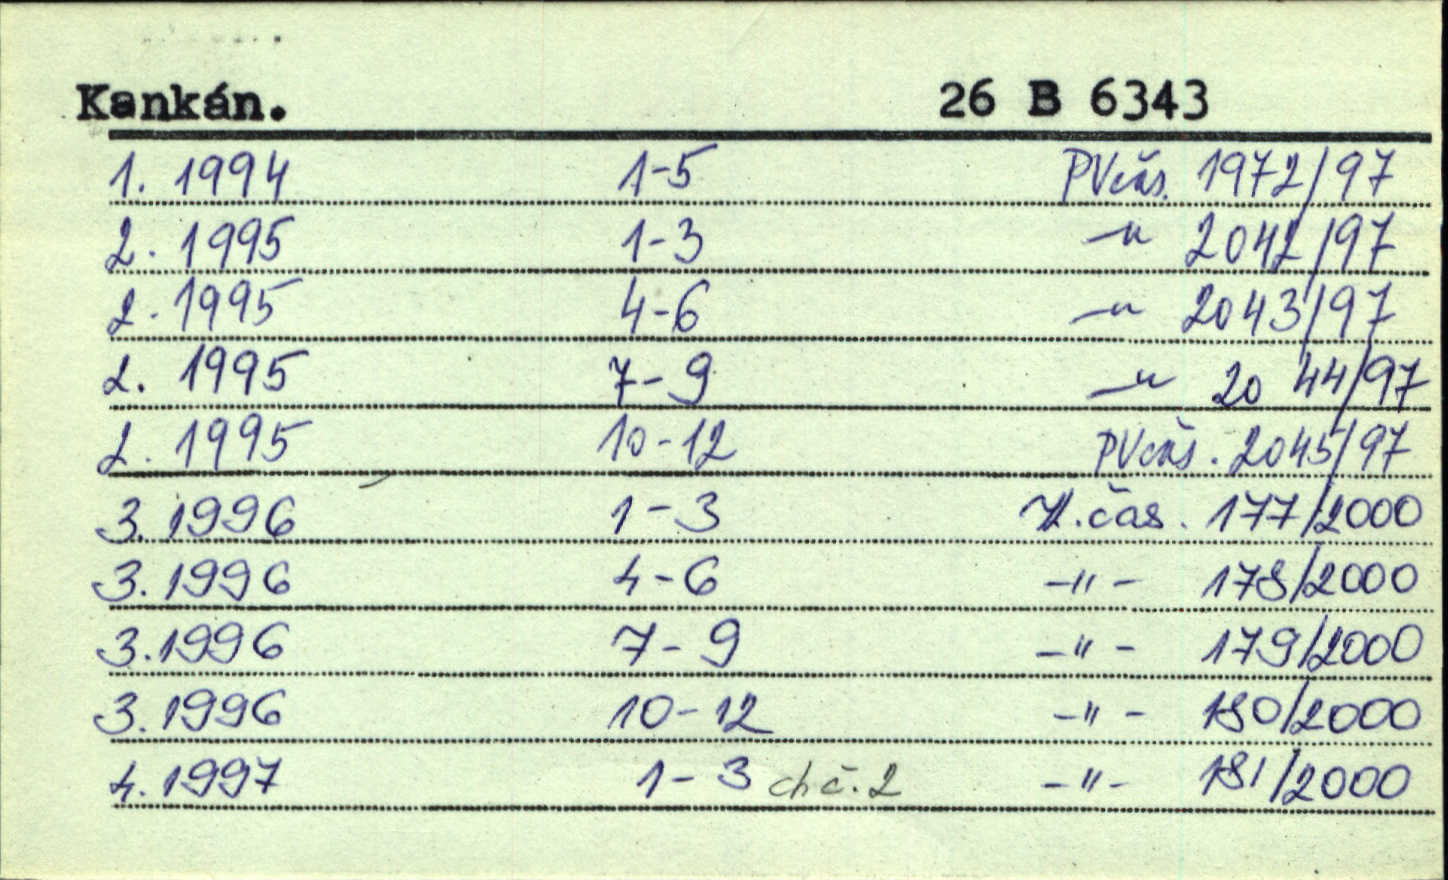 Kankán. 26 B 6343
1. 1994 1-5 PVčás. 1972/97
2. 1995 1-3 -"- 2042/97
2. 1995 4-6 -"- 2043/97
2. 1995 7-9 -"- 2044/97
2. 1995 10-12 PVčás. 2045/97
3. 1996 1-3 čas. 177/2000
3. 1996 4-6 -"- 178/2000
3. 1996 7-9 -"- 179/2000
3. 1996 10-12 -"- 180/2000
4. 1997 1-3 ch č. 2 -"- 181/2000